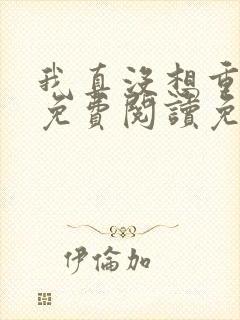 我真沒想重
免費閱讀免
伊倫加